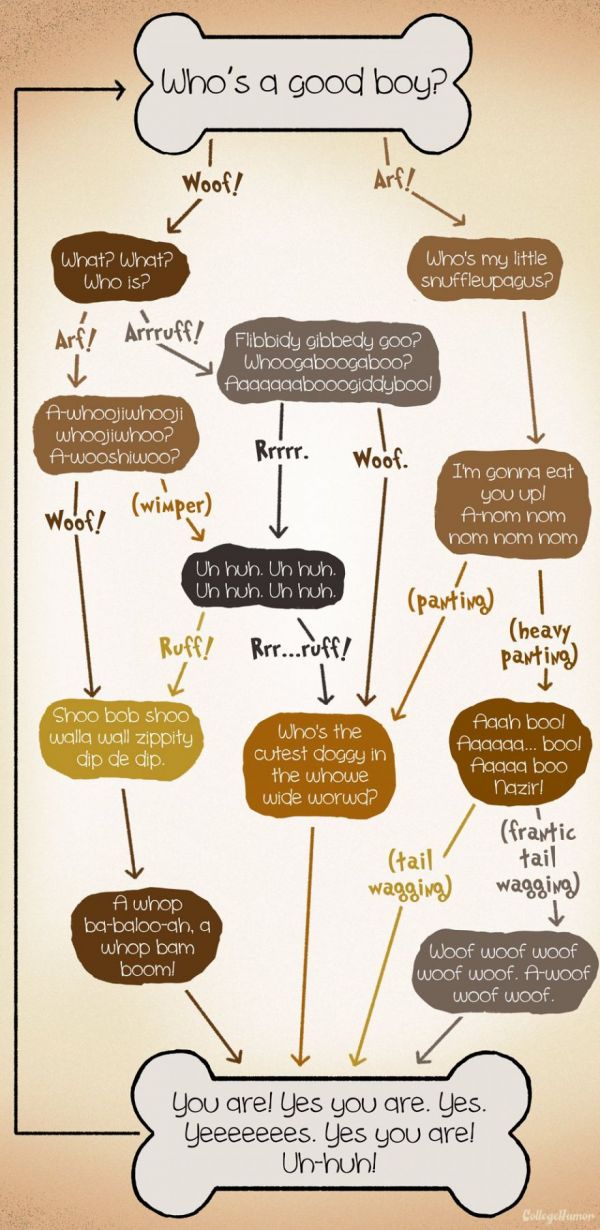 Who's a good boy?
Woof!
Arf!
What? What?
Who is?
Who's my little
snuffleupagus?
Arf!
Arrruff!
Flibbidy gibbedy goo?
Whoogaboogaboo?
Aaaaaaabooogiddyboo!
A-whoojiwhooji
whoojiwhoo?
A-wooshiwoo?
Rrrrr.
Woof.
I'm gonna eat
you up!
A-nom nom
nom nom nom
Woof!
(wimper)
Uh huh. Uh huh.
Uh huh. Uh huh.
(panting)
(heavy
panting)
Ruff!
Rrr...ruff!
Shoo bob shoo
walla wall zippity
dip de dip.
Who's the
cutest doggy in
the whowe
wide worwd?
Aaah boo!
Aaaaaa... boo!
Aaaaa boo
Nazir!
(tail
wagging)
(frantic
tail
wagging)
A whop
ba-baloo-ah, a
whop bam
boom!
Woof woof woof
woof woof. A-woof
woof woof.
You are! Yes you are. Yes.
Yeeeeeees. Yes you are!
Uh-huh!
CollegeHumor